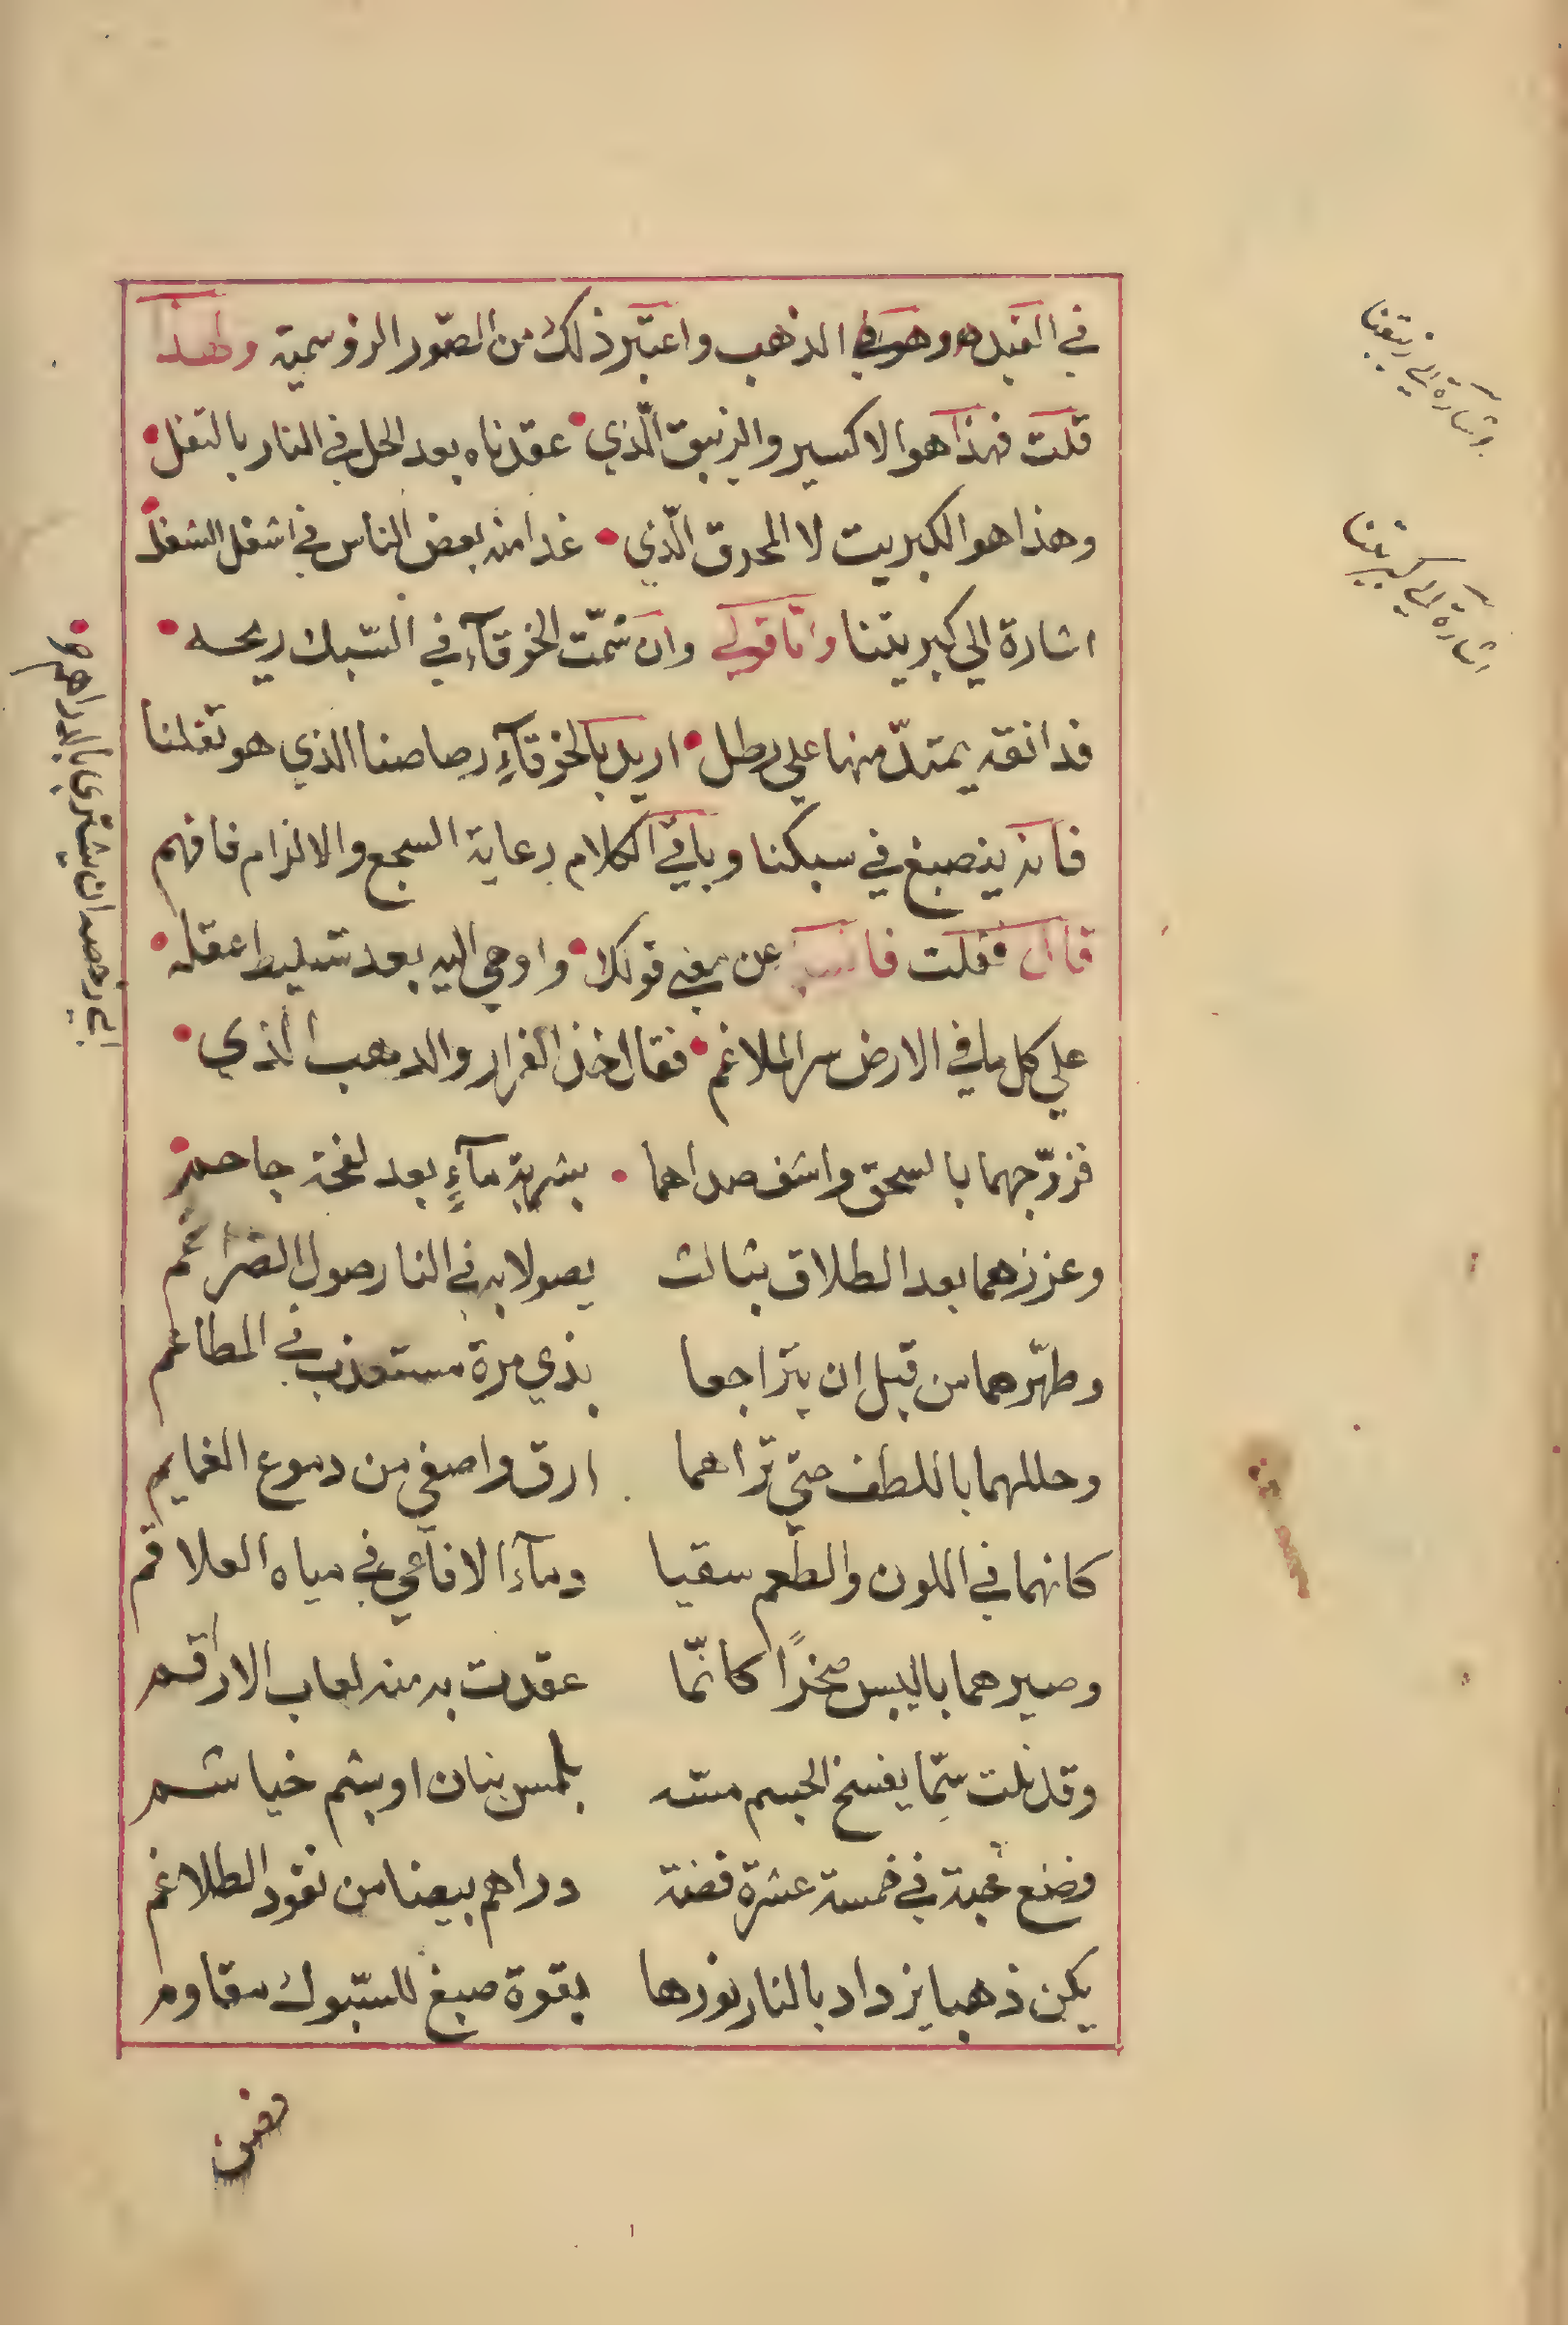 في القبل هو وهو في الذهب واعتبر ذلك من الصّور الروسمية ولهذا
قلت فهذا هو الاكسير والزيبق الّذي • عقدناه بعد الحل في النار بالتفل •
وهذا هو الكبريت لا المحرق الّذي • غدا منه بعض الناس في اشغل الشغل
اشارة الي كبريتنا وامّا قولي وان شمّت الخرقآء في السّبك ريحه •
فدانقه يمتدّ منها علي رطل • اريد بالخرقآءِ رصاصنا الذي هو تفلنا
فانه ينصبغ في سبكنا وباقي الكلام رعاية السجع والالزام فافهم
قال فقلت عن معني قولك • واوحي اليه بعد تسليط عقله •
علي كل ما في الارض سر الملاغم • فقال خذ الفرار والذهب الذي •
فزوّجهما بالسحق واشف صداهما • بشربة مآءٍ بعد لفحة جاحم •
وعززهما بعد الطلاق بثالث يصولا به في النار صول الضراغم
وطهّرهما من قبل ان يتراجعا بذي مرة مستعذب في المطاعم
وحللهما باللطف حتي تراهما ارق واصفي من دموع الغمايم
كانهما في اللون والطّعم سقيا دمآء الافاعي في مياه العلاقم
وصيرهما باليبس صخرًا كانّما عقدت به منه لعاب الاراقم
وقد نلت سمّا يفسخ الجسم مسّه بلمس بنان او بشم خياشم
فضع حبة في خمسة عشرة فضة دراهم بيضا من نقود الطلاغم
يكن ذهبا يزداد بالنار نورها بقوة صبغ للسّبوك مقاوم
اشارة الي زيبقنا
اشارة الي كبريتنا
ابي رخصه ان يشتري بالدراهم •